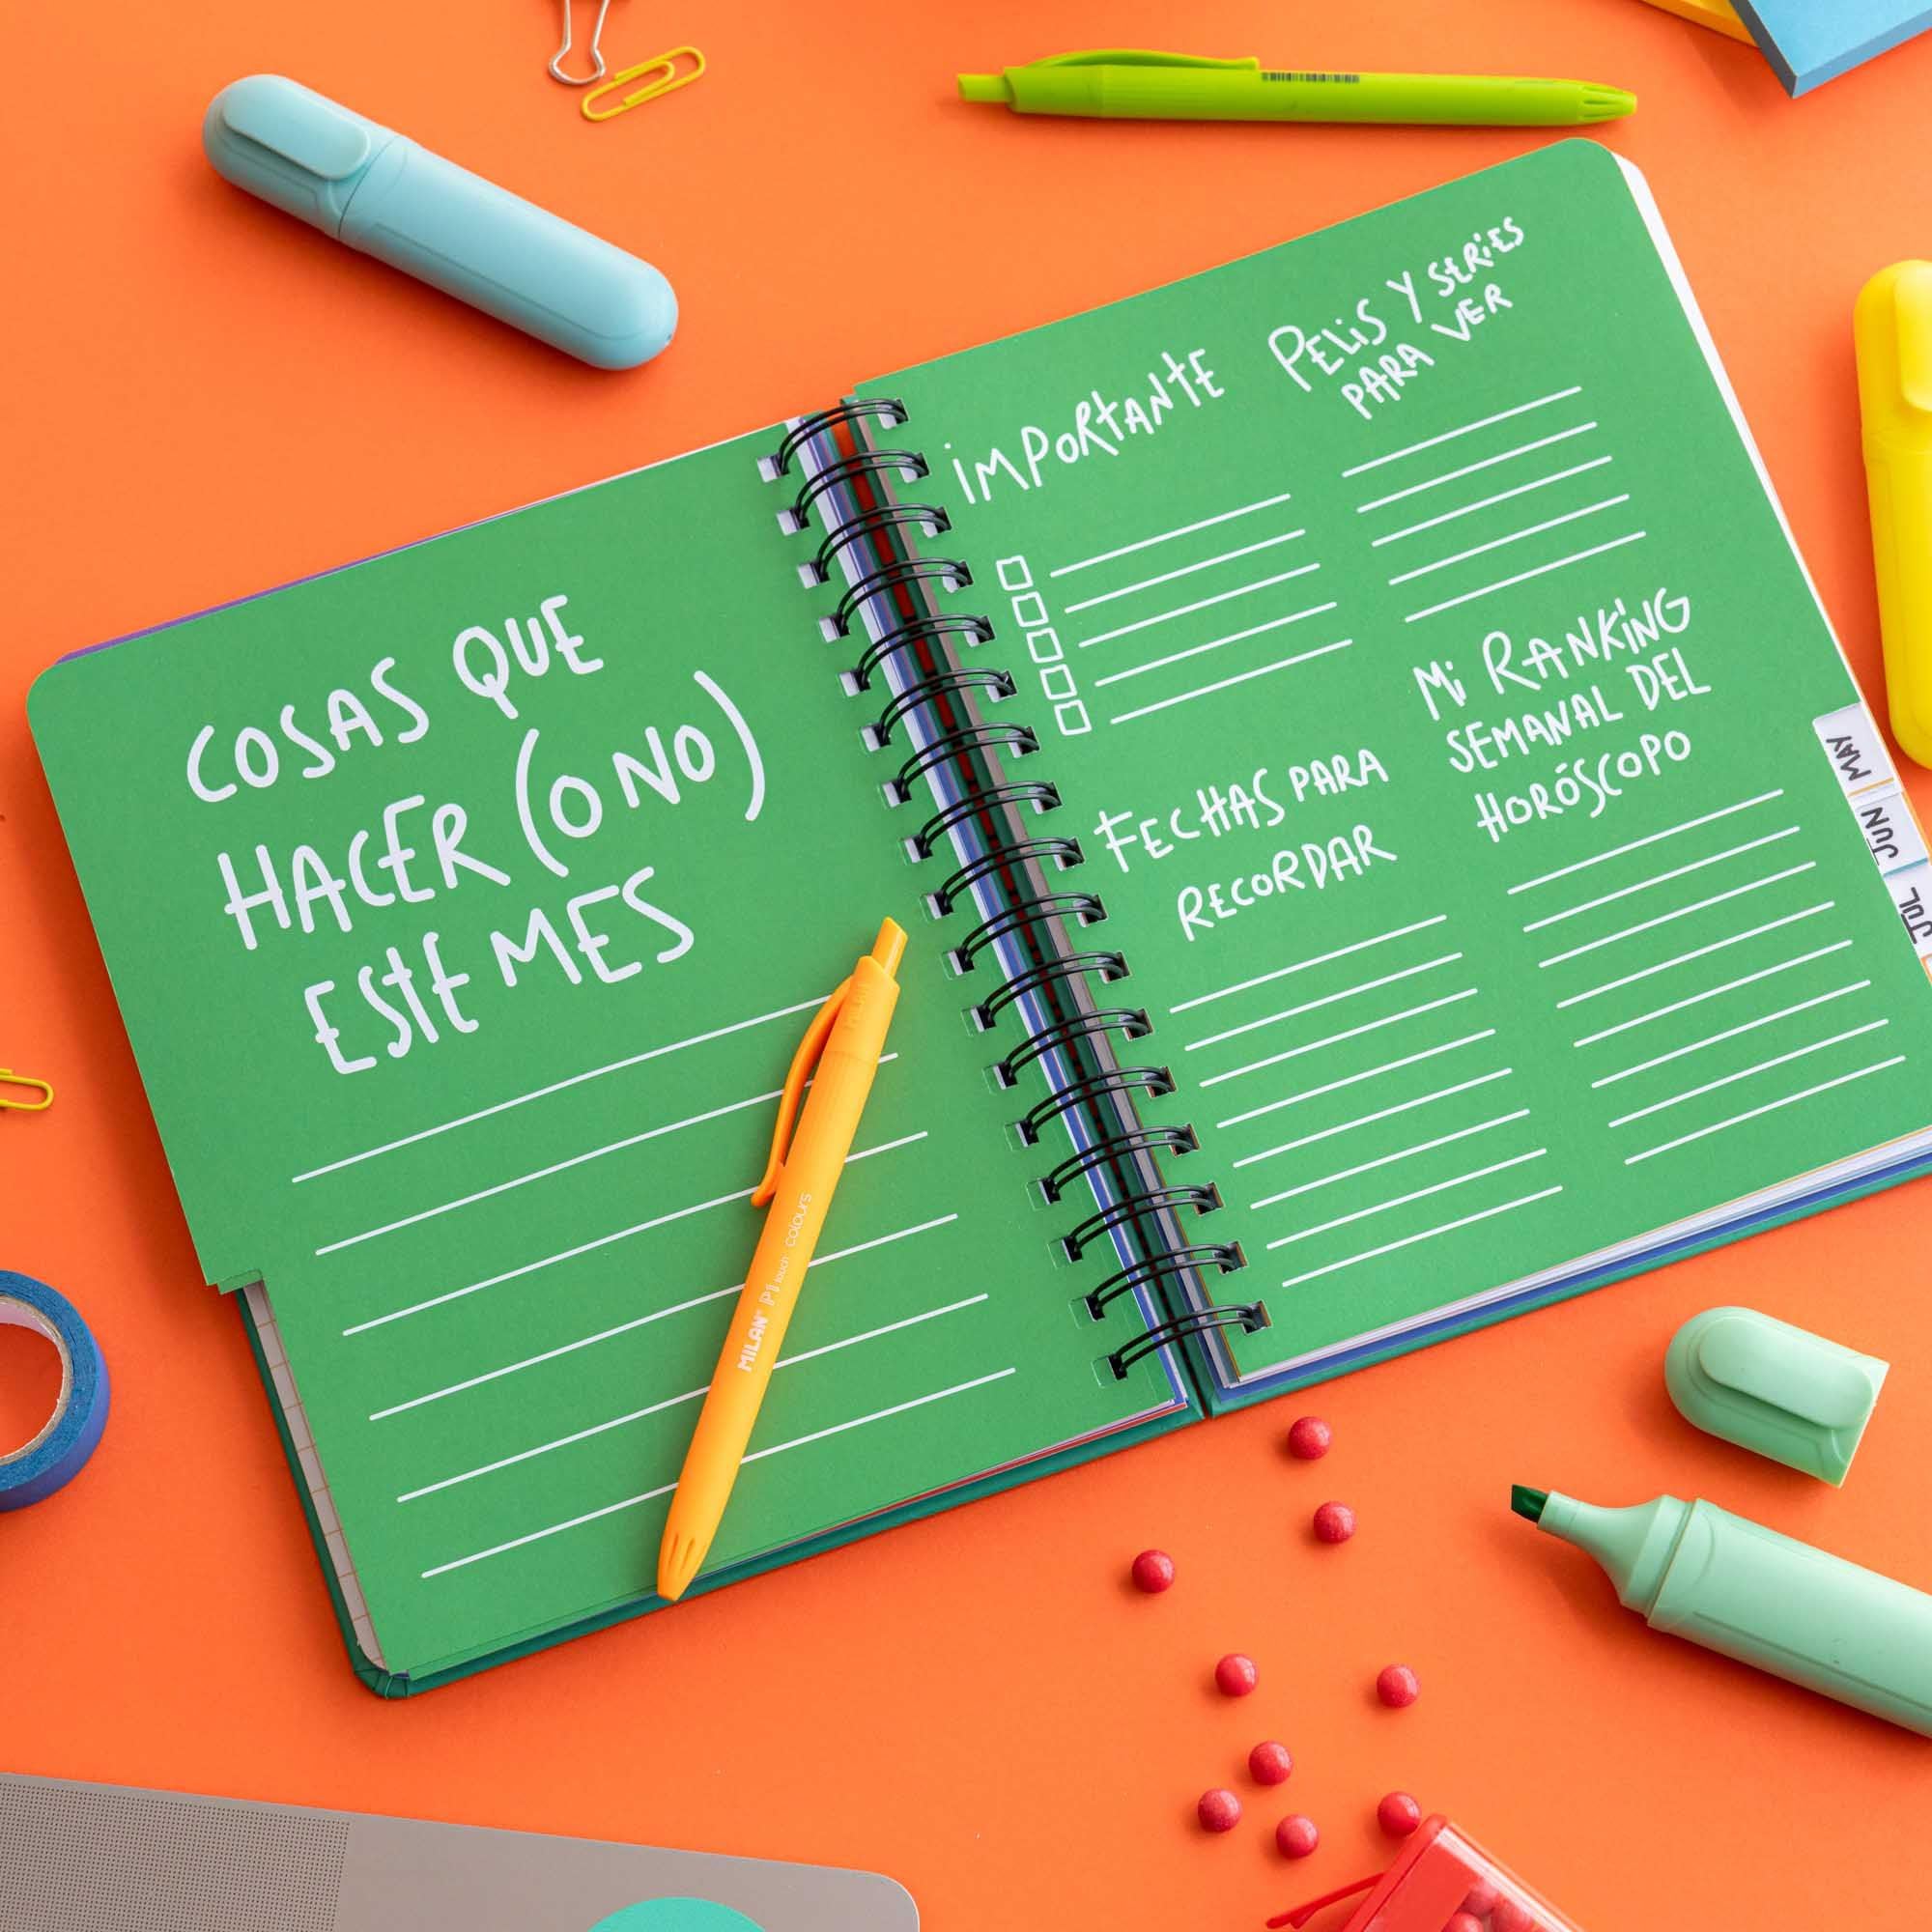 COSAS QUE
HACER (O NO)
ESTE MES
MILAN PI touch colours
IMPORTANTE
PELIS Y SERIES
PARA VER
FECHAS PARA
RECORDAR
MI RANKING
SEMANAL DEL
HORÓSCOPO
MAY
JUN
JUL